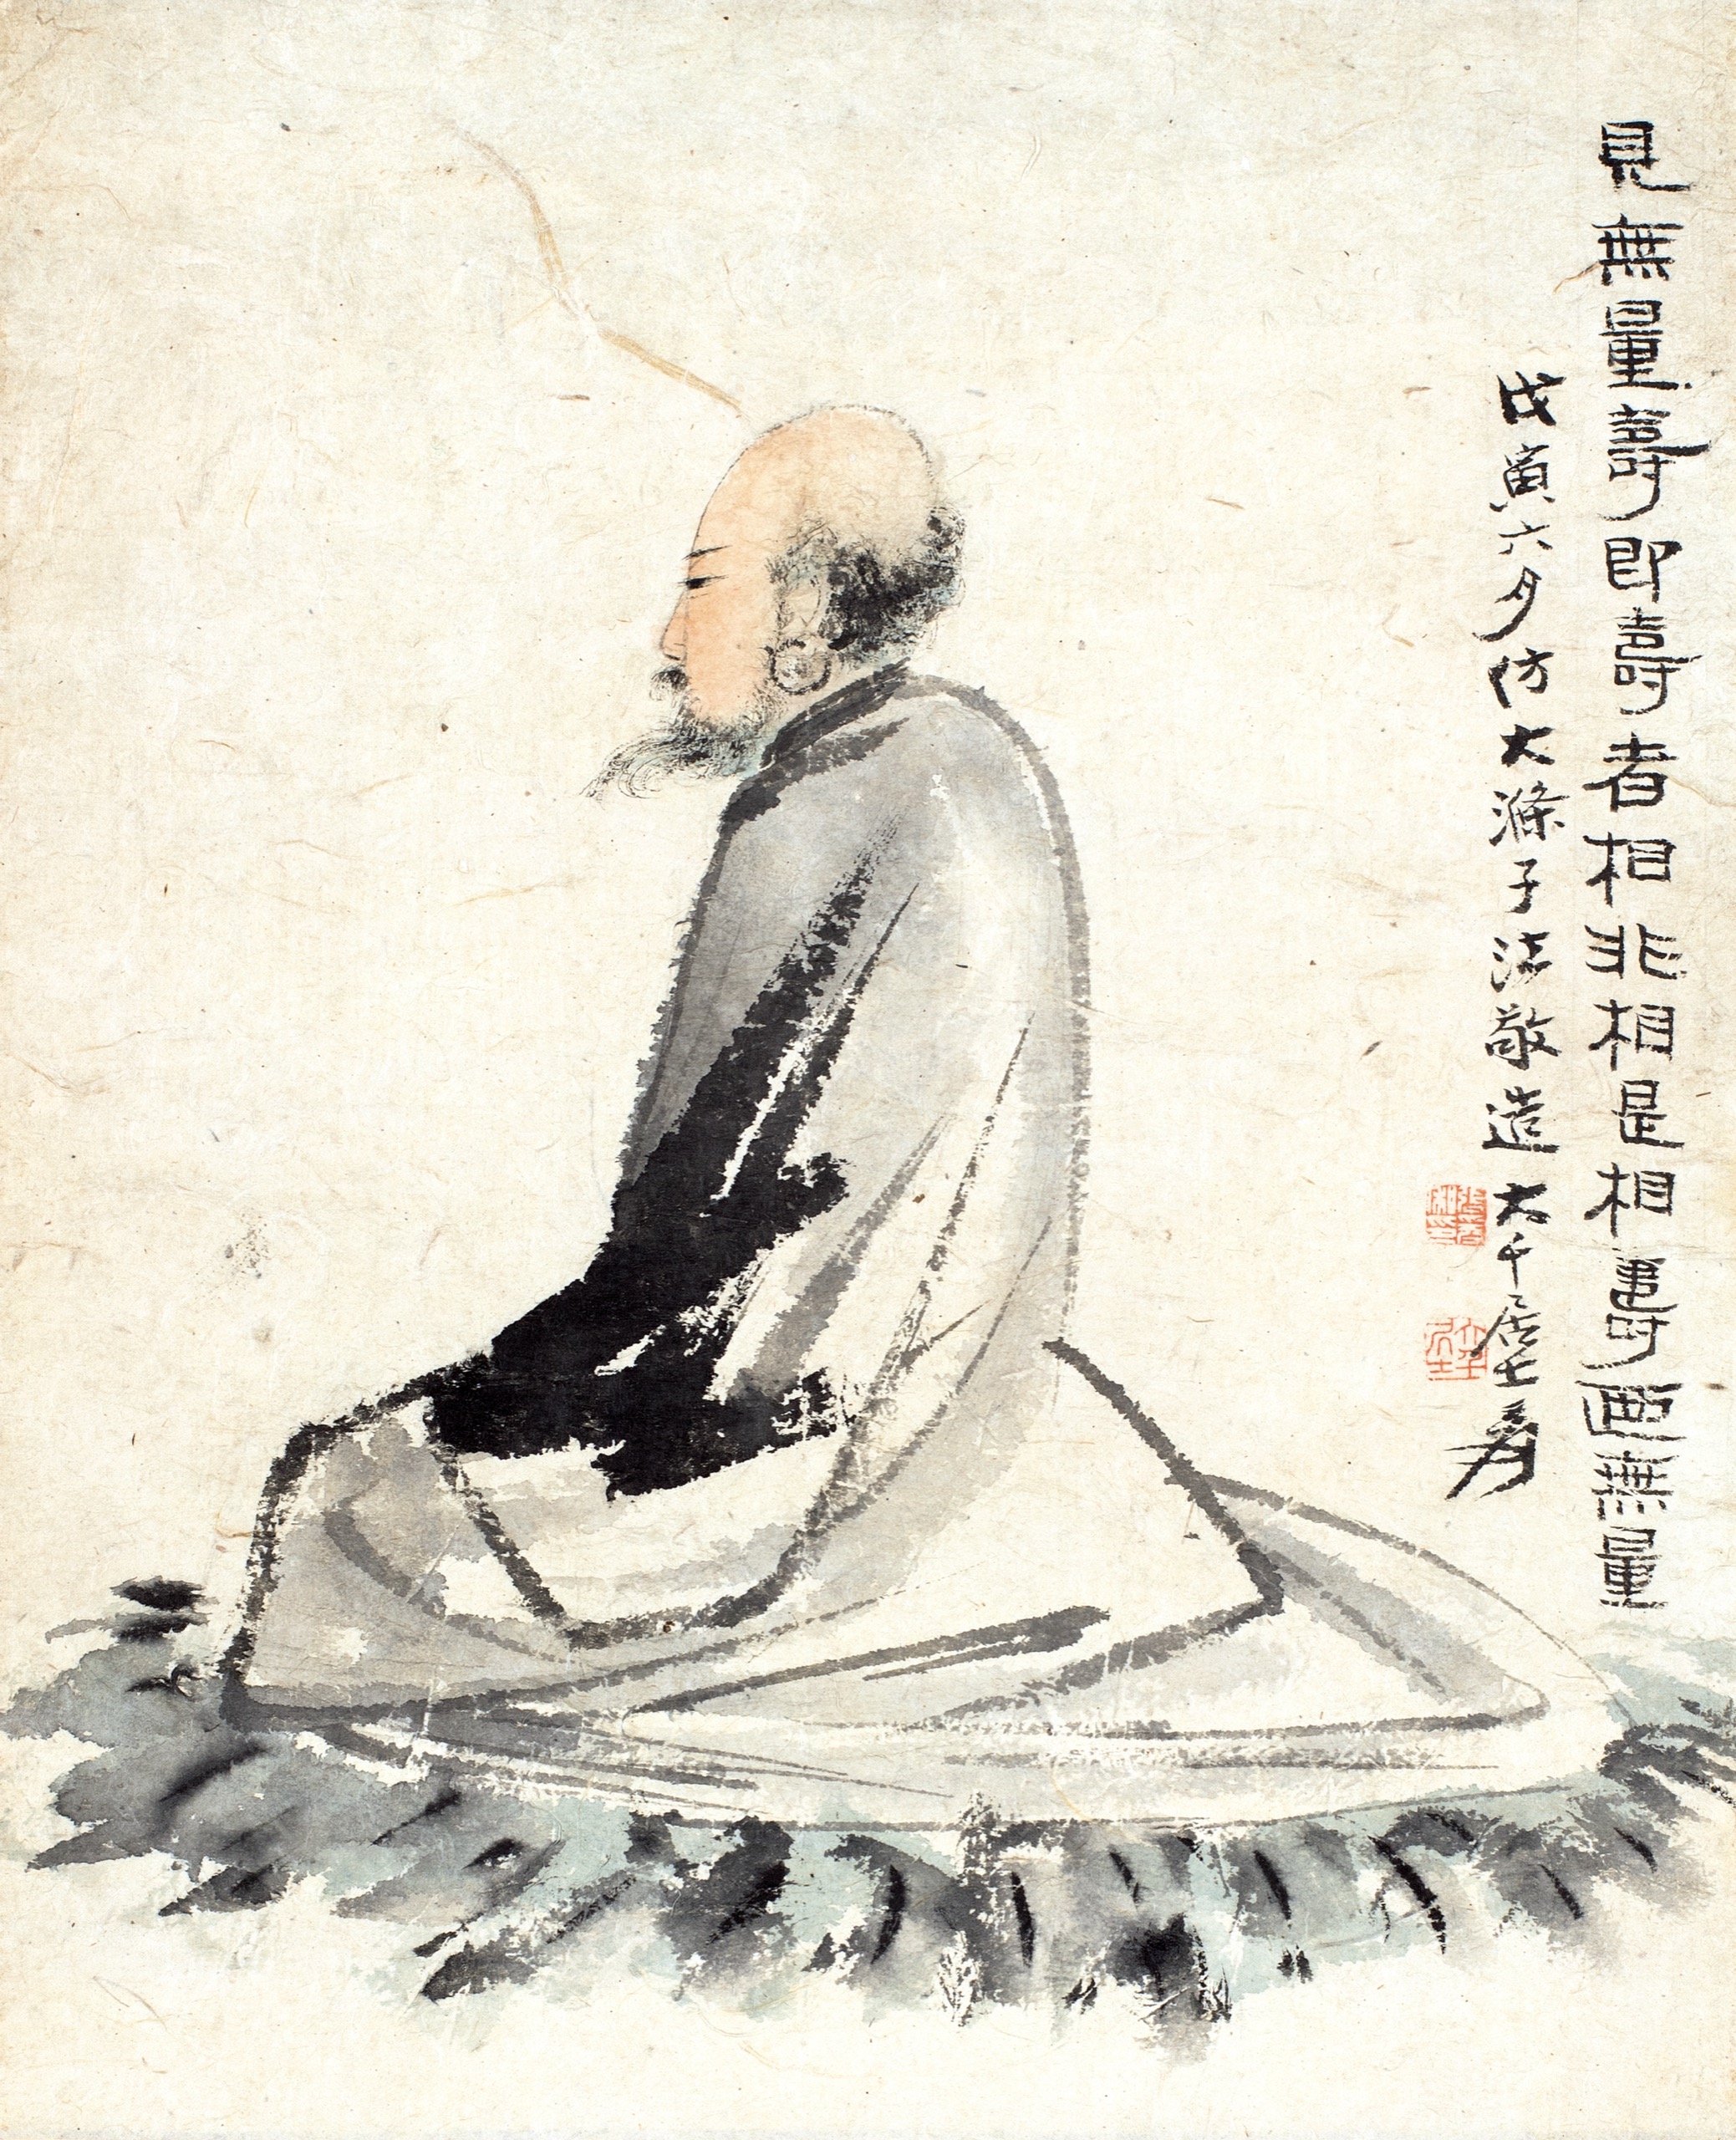 見無量壽即壽者相非相是相壽画無量
戊寅六月仿大滌子法敬造大千居士爰